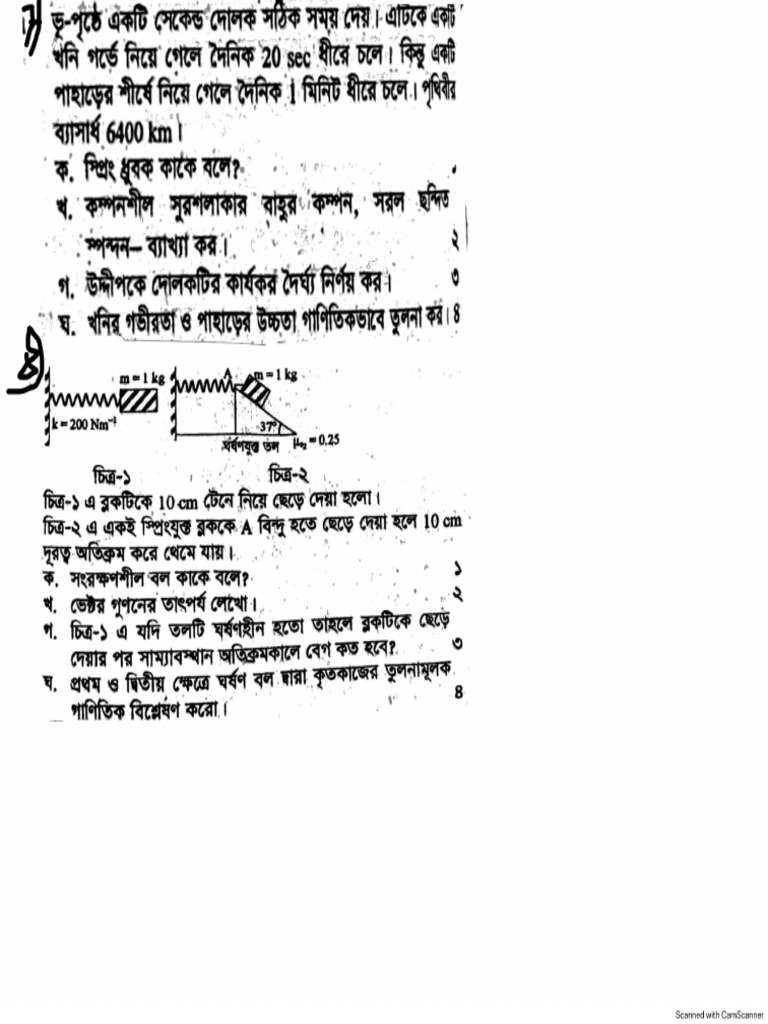 ভূ-পৃষ্ঠে একটি সেকেন্ড দোলক সঠিক সময় দেয়। এটিকে একটি
খনি গর্ভে নিয়ে গেলে দৈনিক 20 sec ধীরে চলে। কিন্তু একটি
পাহাড়ের শীর্ষে নিয়ে গেলে দৈনিক 1 মিনিট ধীরে চলে। পৃথিবীর
ব্যাসার্ধ 6400 km।
ক. স্প্রিং ধ্রুবক কাকে বলে?
খ. কম্পনশীল সুরশলাকার বাহুর কম্পন, সরল ছন্দিত
স্পন্দন– ব্যাখ্যা কর। ২
গ. উদ্দীপকে দোলকটির কার্যকর দৈর্ঘ্য নির্ণয় কর। ৩
ঘ. খনির গভীরতা ও পাহাড়ের উচ্চতা গাণিতিকভাবে তুলনা কর। ৪
m = 1 kg
k = 200 Nm⁻¹
A m = 1 kg
37°
= 0.25
ঘর্ষণযুক্ত তল
চিত্র-১ চিত্র-২
চিত্র-১ এ ব্লকটিকে 10 cm টেনে নিয়ে ছেড়ে দেয়া হলো।
চিত্র-২ এ একই স্প্রিংযুক্ত ব্লককে A বিন্দু হতে ছেড়ে দেয়া হলে 10 cm
দূরত্ব অতিক্রম করে থেমে যায়।
ক. সংরক্ষণশীল বল কাকে বলে? ১
খ. ভেক্টর গুণনের তাৎপর্য লেখো। ২
গ. চিত্র-১ এ যদি তলটি ঘর্ষণহীন হতো তাহলে ব্লকটিকে ছেড়ে
দেয়ার পর সাম্যাবস্থান অতিক্রমকালে বেগ কত হবে? ৩
ঘ. প্রথম ও দ্বিতীয় ক্ষেত্রে ঘর্ষণ বল দ্বারা কৃতকাজের তুলনামূলক
গাণিতিক বিশ্লেষণ করো। ৪
Scanned with CamScanner